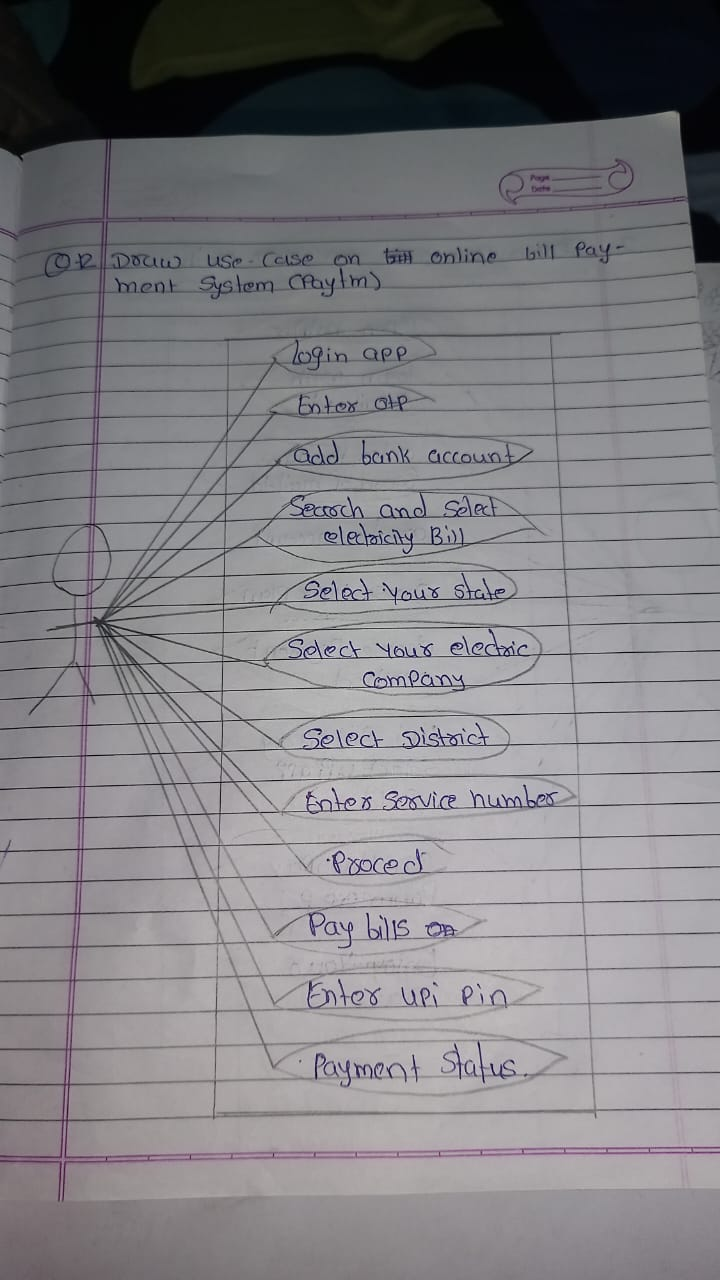 Page
Date
Q2 Draw use-case on online bill Pay-
ment System (Paytm)
login app
Enter otp
add bank account
Search and Select
electricity Bill
Select Your state
Select Your electric
Company
Select District
Enter Service number
Proced
Pay bills
Enter upi pin
Payment Status.